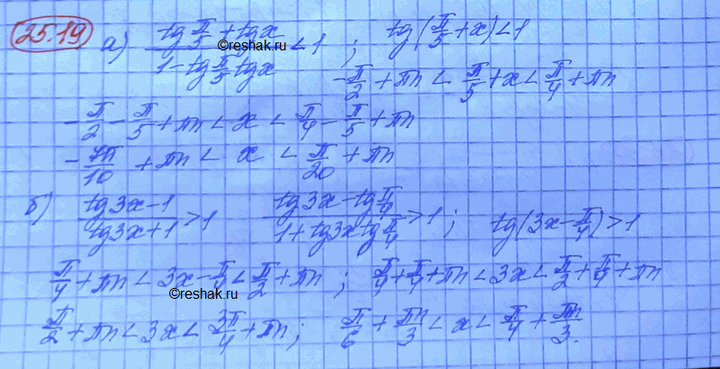 25.19 а) (tg π/5 + tg x)/(1 - tg π/5 tg x) < 1 ; tg(π/5 + x) < 1
©reshak.ru
-π/2 + πn < π/5 + x < π/4 + πn
-π/2 - π/5 + πn < x < π/4 - π/5 + πn
-7π/10 + πn < x < π/20 + πn
б) (tg 3x - 1)/(tg 3x + 1) > 1 (tg 3x - tg π/4)/(1 + tg 3x tg π/4) > 1 ; tg(3x - π/4) > 1
π/4 + πn < 3x - π/4 < π/2 + πn ; π/4 + π/4 + πn < 3x < π/2 + π/4 + πn
©reshak.ru
π/2 + πn < 3x < 3π/4 + πn ; π/6 + πn/3 < x < π/4 + πn/3.